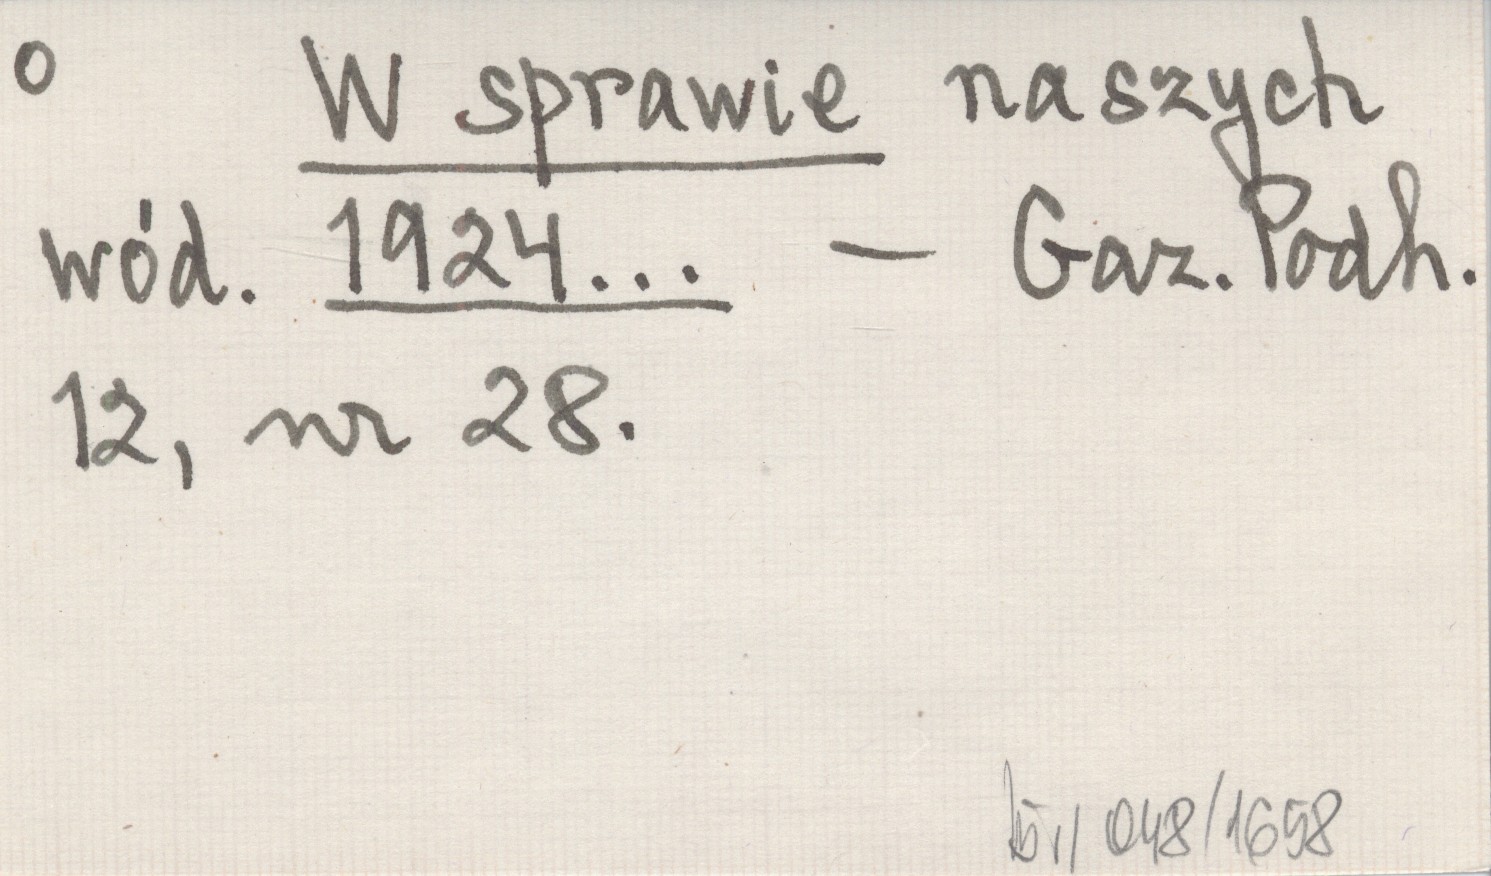 o W sprawie naszych
wód. 1924... — Gaz. Podh.
12, nr 28.
048/1658